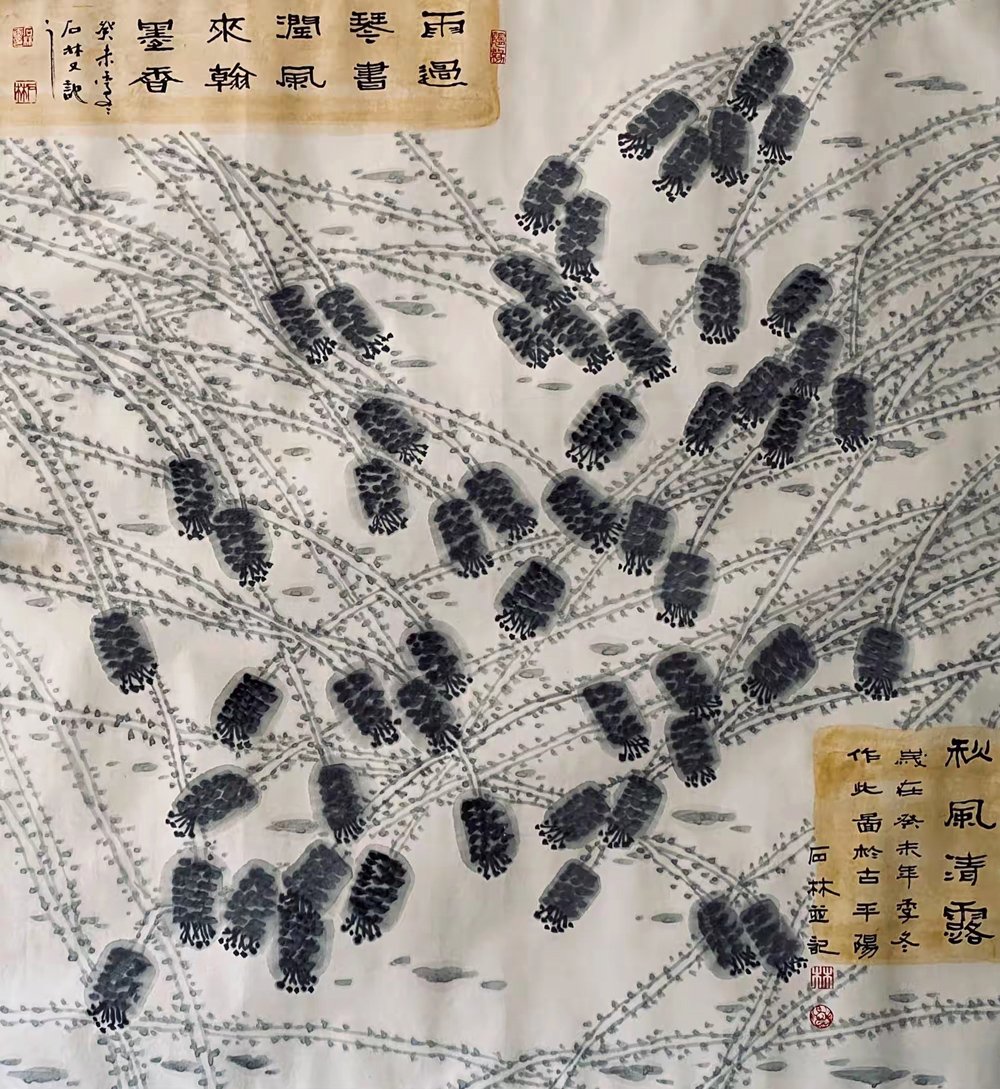 雨過
琴書
潤風
來翰
墨香
癸未季冬
石林又記
秋風清露
歲在癸未年季冬
作此啚於古平陽
石林並記
林